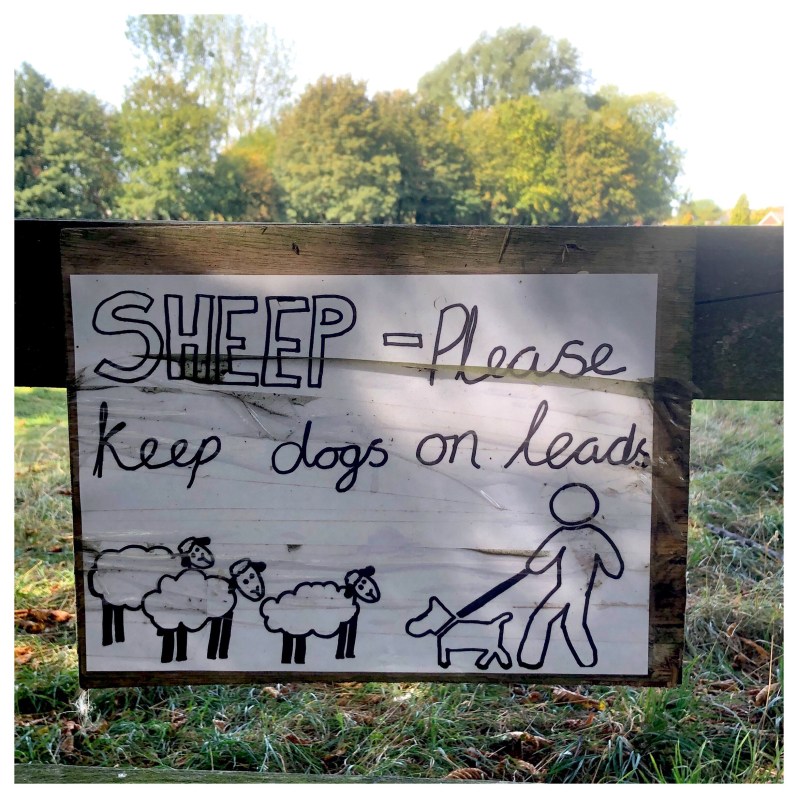 SHEEP - Please
keep dogs on leads